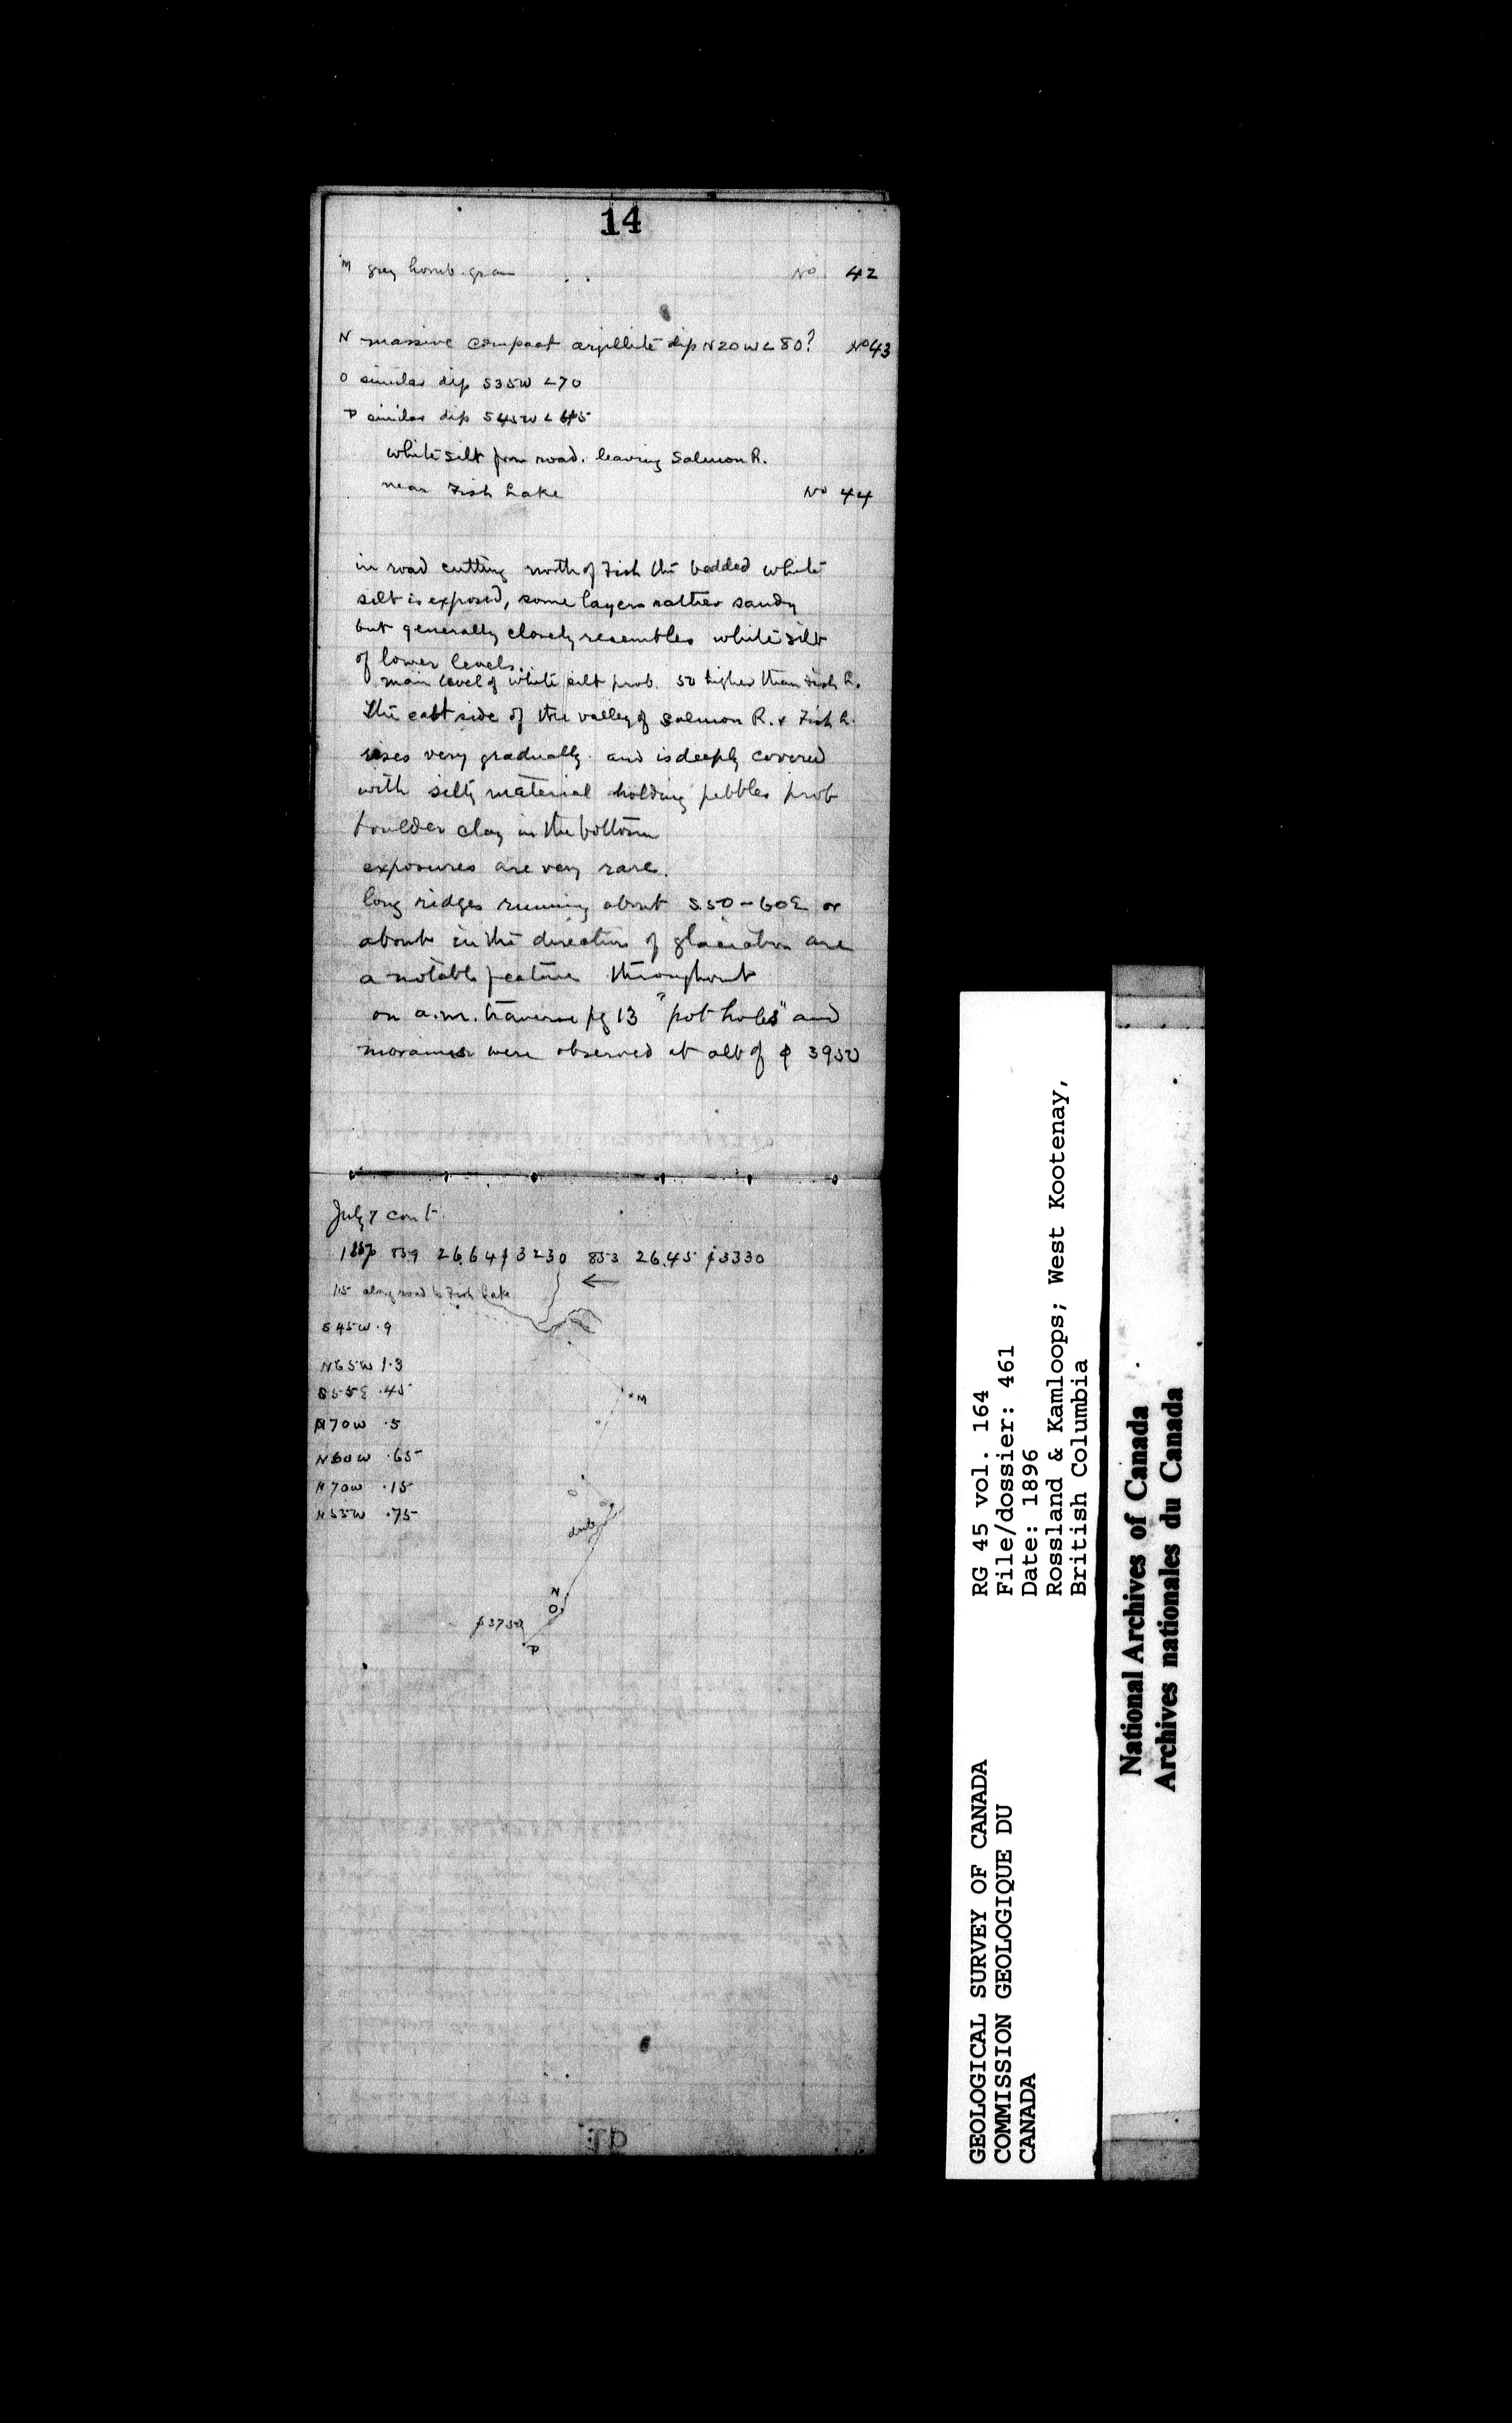 14
M grey hornb. gran No 42
N massive compact argillite dip N20W < 80? No 43
O similar dip S35W < 70
P similar dip S45W <
white silt from road. leaving Salmon R.
near Fish Lake No 44
in road cutting north of Fish the bedded white
silt is exposed, some layers rather sandy
but generally closely resembles white silt
of lower levels.
main level of white silt prob. 50 higher than Fish L.
The east side of the valley of Salmon R. & Fish L.
rises very gradually and is deeply covered
with silty material holding pebbles prob
boulder clay in the bottom
exposures are very rare.
long ridges running about S50-60E or
about in the direction of glaciation are
a notable feature throughout
on a.m. traverse pg 13 "pot holes" and
moraines were observed at alt of ϕ 3950
July 7 cont.
859 26.64 ϕ 3230 853 26.45 ϕ 3330
115 along road to Fish Lake
S45W .9
N65W 1.3
S55E .45
N70W .5
N60W .65
N70W .15
N55W .75
M
N
O
ϕ 3750
P
RG 45 vol. 164
File/dossier: 461
Date: 1896
Rossland & Kamloops; West Kootenay,
British Columbia
GEOLOGICAL SURVEY OF CANADA
COMMISSION GEOLOGIQUE DU
CANADA
National Archives of Canada
Archives nationales du Canada